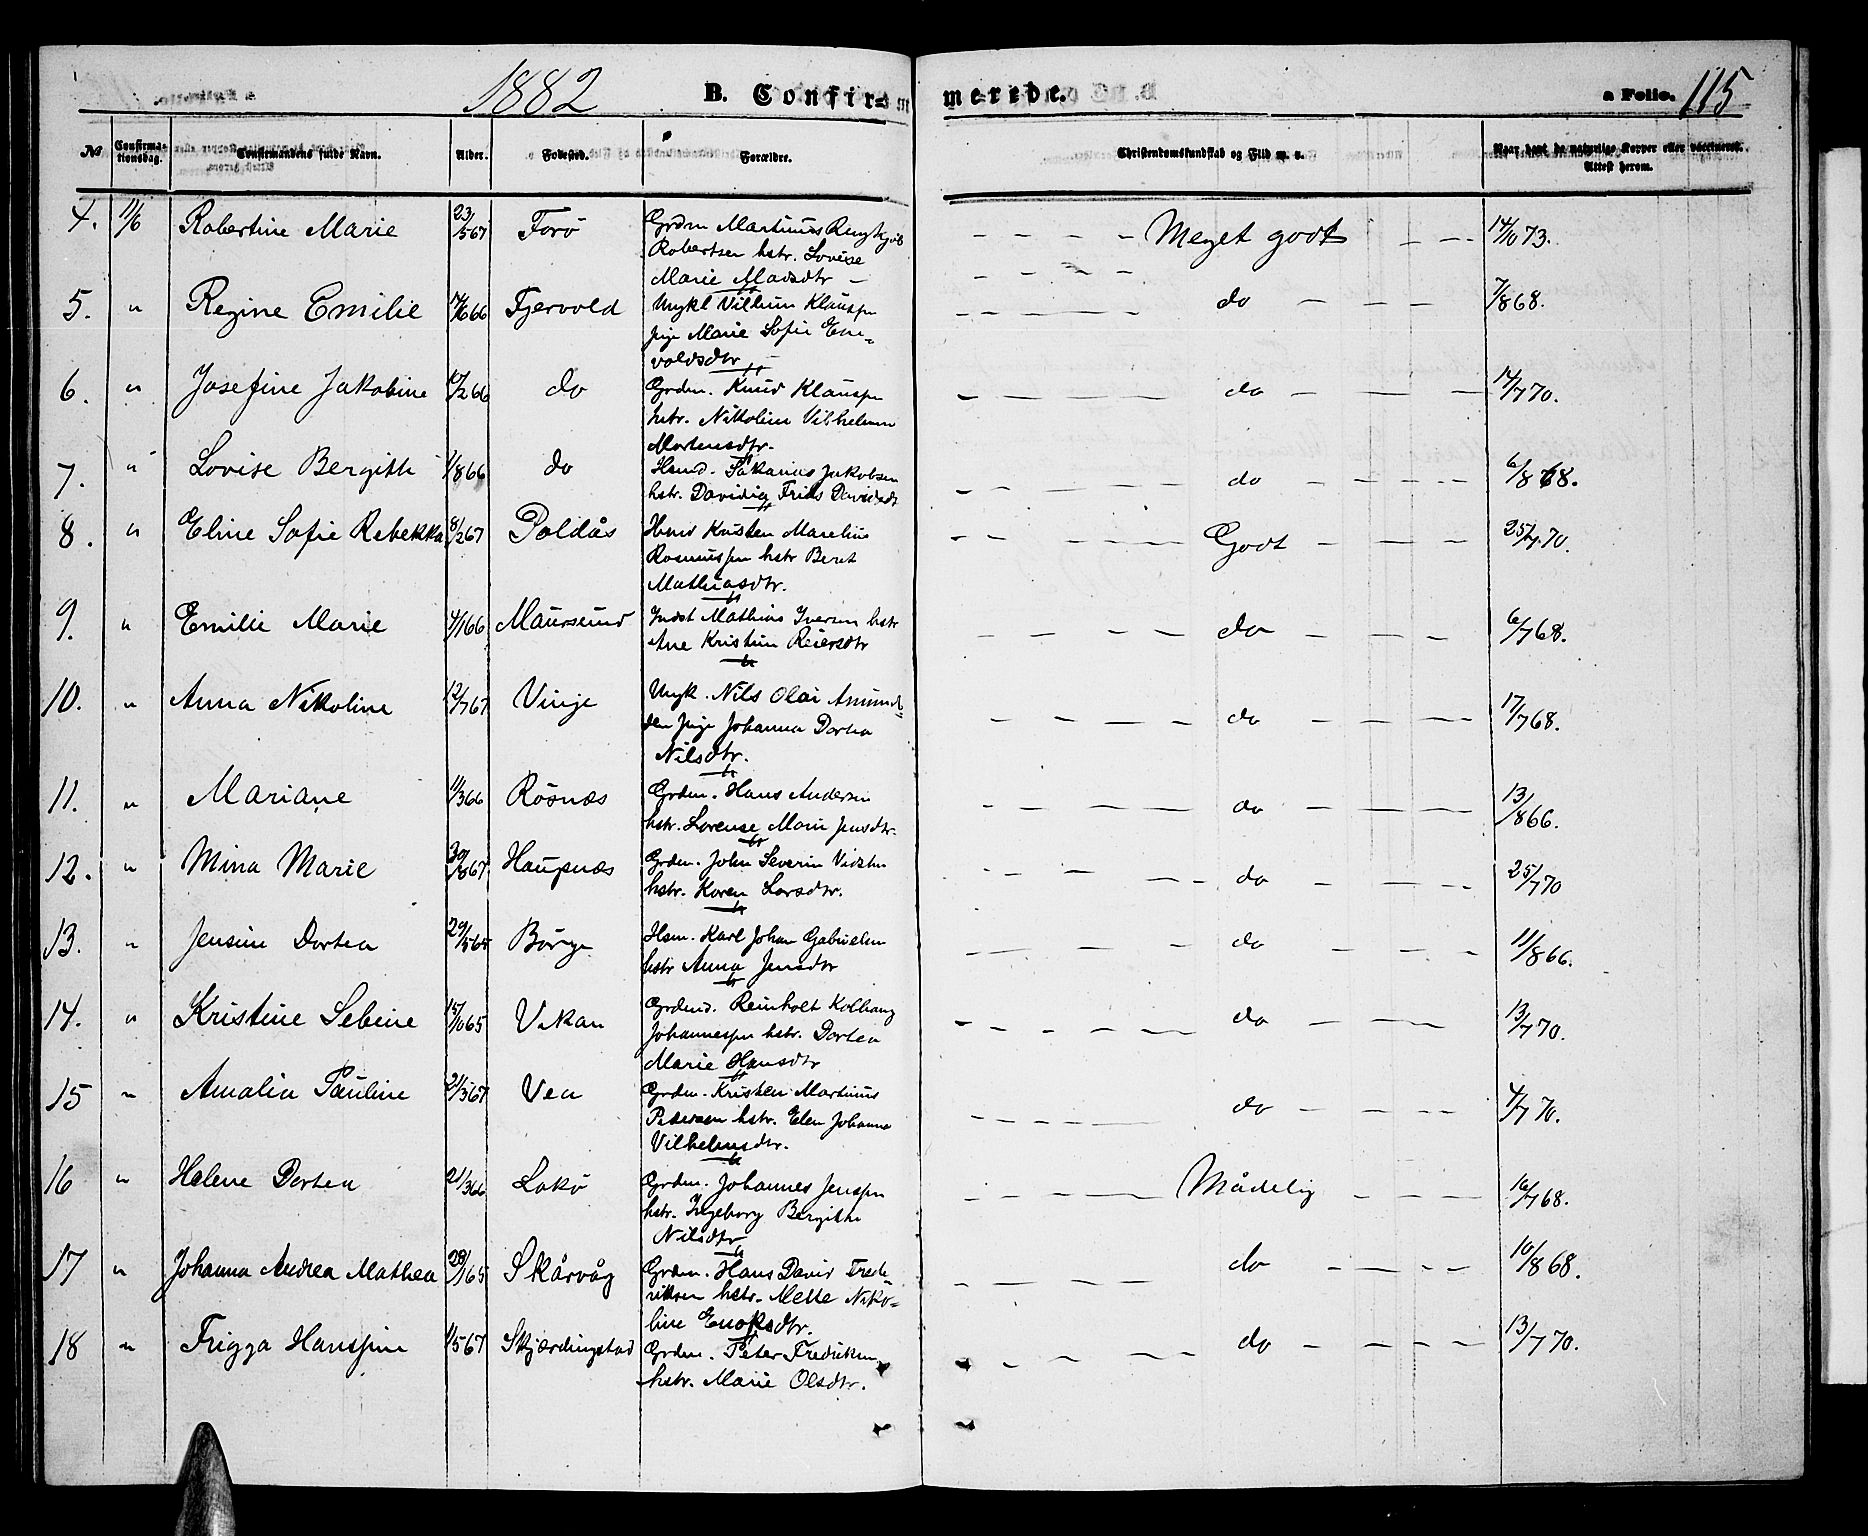 1882 B. Confirmerede. a Folio. 115
№ Confirmationsdag. Confirmandens fulde Navn. Alder. Fødested. Forældre. Christendomskundskab og Flid m. v. Naar havt de naturlige Kopper eller vaccineret. Attest herom.
4. 11/6 Robertine Marie 23/5 67 Torö Grdm Martinus
Robertsen hstr. Lovise
Marie Madsdtr Meget godt 14/10 73.
5. " Regine Emilie 14/6 66 Tjervold Ungkl Vilhum Klaussen
Pige Marie Sofie Ene-
voldsdtr do 7/8 68.
6. " Josefine Jakobine 17/2 66 do Grdm. Knud Klaussen
hstr. Nikoline Vilhelmine
Mortensdtr. do 14/7 70.
7. " Lovise Bergitte 1/8 66 do Hsmd. Sakarias Jakobsen
hstr. Davidia Friis Davidsdt do 6/8 68.
8. " Eline Sofie Rebekka 8/2 67 Poldås Hsmd Kristen Marelius
Rasmussen hstr Beret
Mathiasdtr. Godt 25/7 70.
9. " Emilie Marie 4/1 66 Maursund Indst Mathias Iversen hstr
Ane Kristine Reiersdtr do 6/7 68.
10. " Anna Nikoline 12/7 67 Vinje Ungk. Nils Olai Amund-
sen Pige Johanna Dortea
Nilsdtr. do 17/7 68.
11. " Mariane 11/3 66 Rösnæs Grdm. Hans Andersen
hstr. Lorense Marie Jensdtr. do 13/8 66.
12. " Mina Marie 30/8 67 Haupnæs Grdm. John Severin
hstr. Karen Larsdtr. do 25/7 70
13. " Jensine Dortea 29/5 65 Börge Hsm. Karl Johan Gabrielsen
hstr Anna Jensdtr do 11/8 66.
14. " Kristine Sebine 15/10 65 Vikan Grdmd. Reinholt Kolbang
Johannessen hstr. Dortea
Marie Hansdtr do 13/7 70.
15 " Amalia Pauline 21/3 67 Vea Grdm. Kristen Martinus
Pedersen hstr. Elen Johanna
Vilhelmsdtr. do 4/7 70.
16 " Helene Dortea 21/3 66 Lokö Grdm. Johannes Jenssen
hstr. Ingeborg Bergitte
Nilsdtr Mådelig 16/7 68.
17 " Johanna Andrea Mathea 28/1 65 Skårvåg Grdm. Hans David Fred-
riksen hstr. Mette Niko-
line Enoksdtr. do 10/8 68.
18 " Frigga Hanssine 1/5 67 Skjærdingstad Grdm. Peter Fredriksen
hstr. Marie Olsdtr. do 13/7 70.